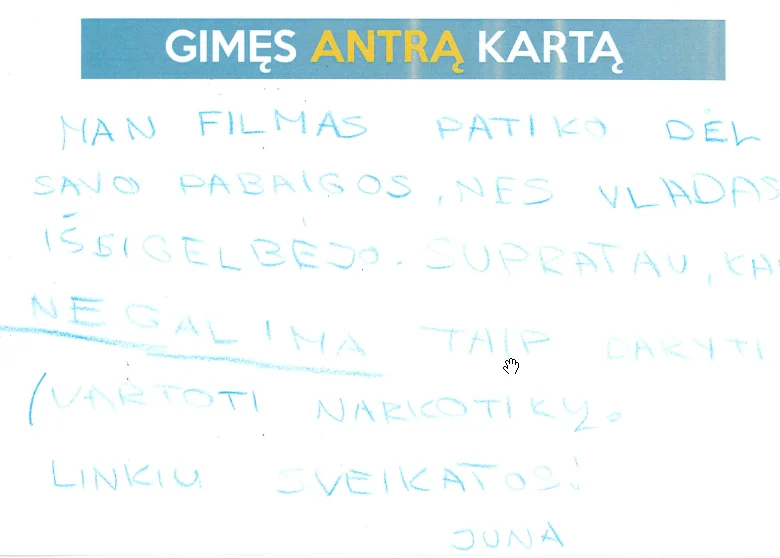 GIMĘS ANTRĄ KARTĄ
MAN FILMAS PATIKO DĖL
SAVO PABAIGOS, NES VLADAS
IŠSIGELBĖJO. SUPRATAU, KA
NEGALIMA TAIP DARYTI
(VARTOTI NARKOTIKŲ.
LINKIU SVEIKATOS!
JUNA